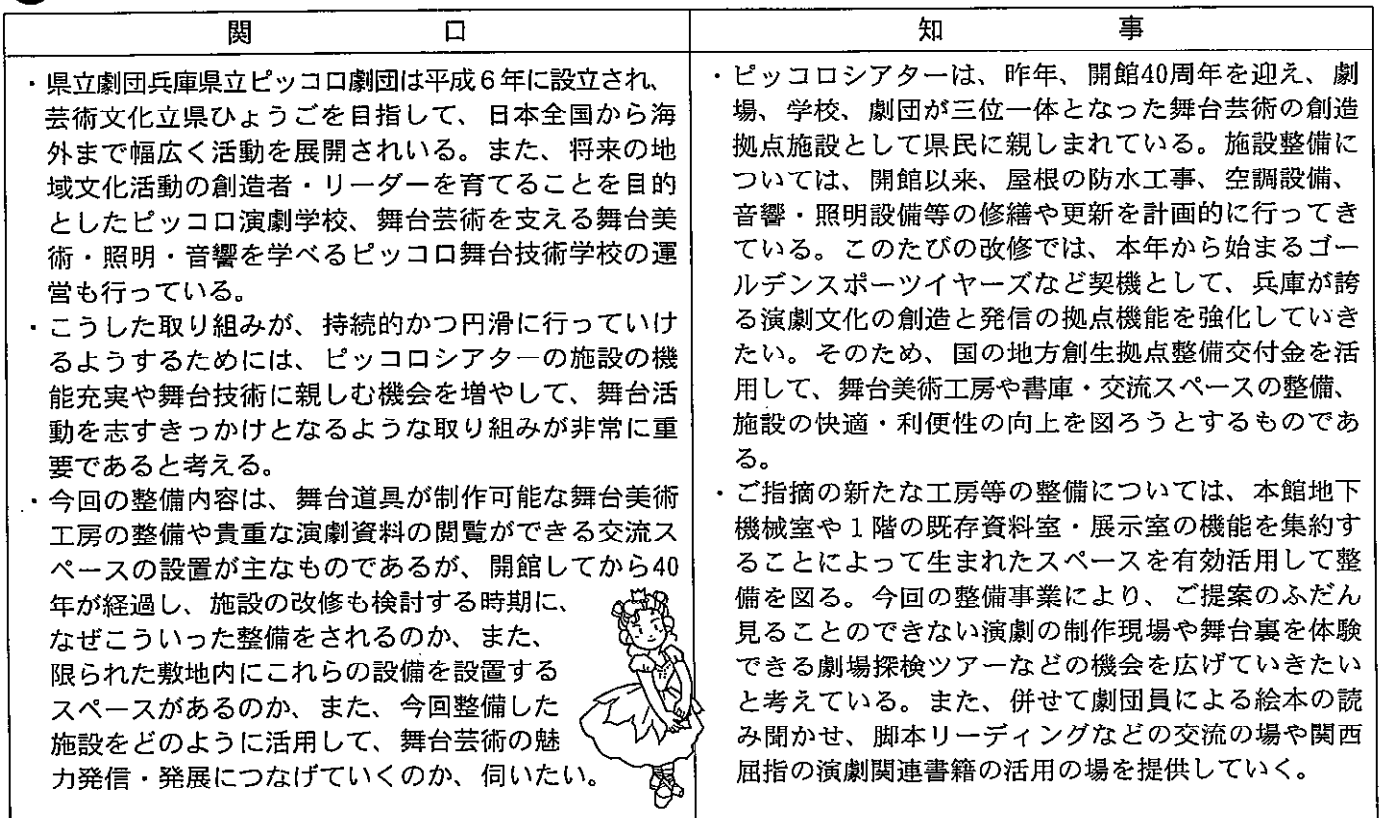 関口
・県立劇団兵庫県立ピッコロ劇団は平成６年に設立され、
芸術文化立県ひょうごを目指して、日本全国から海
外まで幅広く活動を展開されいる。また、将来の地
域文化活動の創造者・リーダーを育てることを目的
としたピッコロ演劇学校、舞台芸術を支える舞台美
術・照明・音響を学べるピッコロ舞台技術学校の運
営も行っている。
・こうした取り組みが、持続的かつ円滑に行っていけ
るようするためには、ピッコロシアターの施設の機
能充実や舞台技術に親しむ機会を増やして、舞台活
動を志すきっかけとなるような取り組みが非常に重
要であると考える。
・今回の整備内容は、舞台道具が制作可能な舞台美術
工房の整備や貴重な演劇資料の閲覧ができる交流ス
ペースの設置が主なものであるが、開館してから40
年が経過し、施設の改修も検討する時期に、
なぜこういった整備をされるのか、また、
限られた敷地内にこれらの設備を設置する
スペースがあるのか、また、今回整備した
施設をどのように活用して、舞台芸術の魅
力発信・発展につなげていくのか、伺いたい。
知事
・ピッコロシアターは、昨年、開館40周年を迎え、劇
場、学校、劇団が三位一体となった舞台芸術の創造
拠点施設として県民に親しまれている。施設整備に
ついては、開館以来、屋根の防水工事、空調設備、
音響・照明設備等の修繕や更新を計画的に行ってき
ている。このたびの改修では、本年から始まるゴー
ルデンスポーツイヤーズなど契機として、兵庫が誇
る演劇文化の創造と発信の拠点機能を強化していき
たい。そのため、国の地方創生拠点整備交付金を活
用して、舞台美術工房や書庫・交流スペースの整備、
施設の快適・利便性の向上を図ろうとするものであ
る。
・ご指摘の新たな工房等の整備については、本館地下
機械室や１階の既存資料室・展示室の機能を集約す
ることによって生まれたスペースを有効活用して整
備を図る。今回の整備事業により、ご提案のふだん
見ることのできない演劇の制作現場や舞台裏を体験
できる劇場探検ツアーなどの機会を広げていきたい
と考えている。また、併せて劇団員による絵本の読
み聞かせ、脚本リーディングなどの交流の場や関西
屈指の演劇関連書籍の活用の場を提供していく。